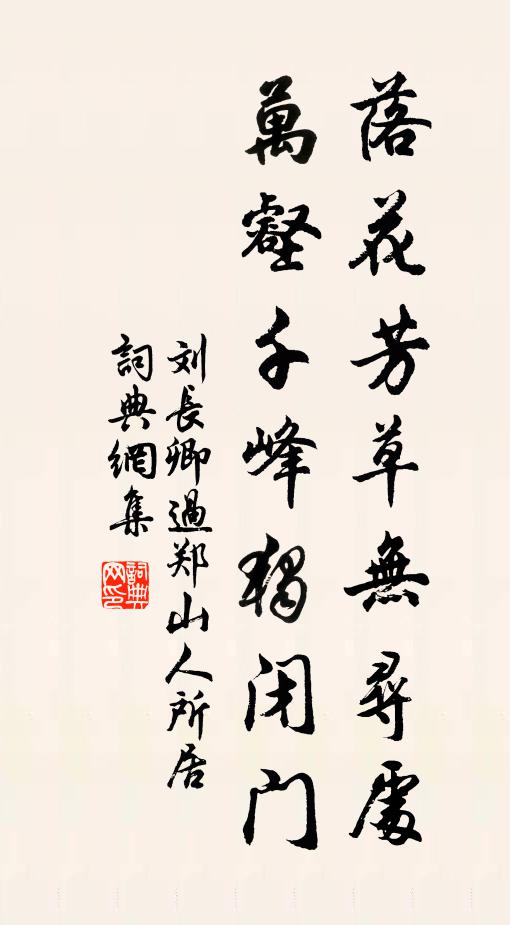 落花芳草無尋處
萬壑千峰獨闭门
刘長卿過郑山人所居
詞典網集
詞典网印